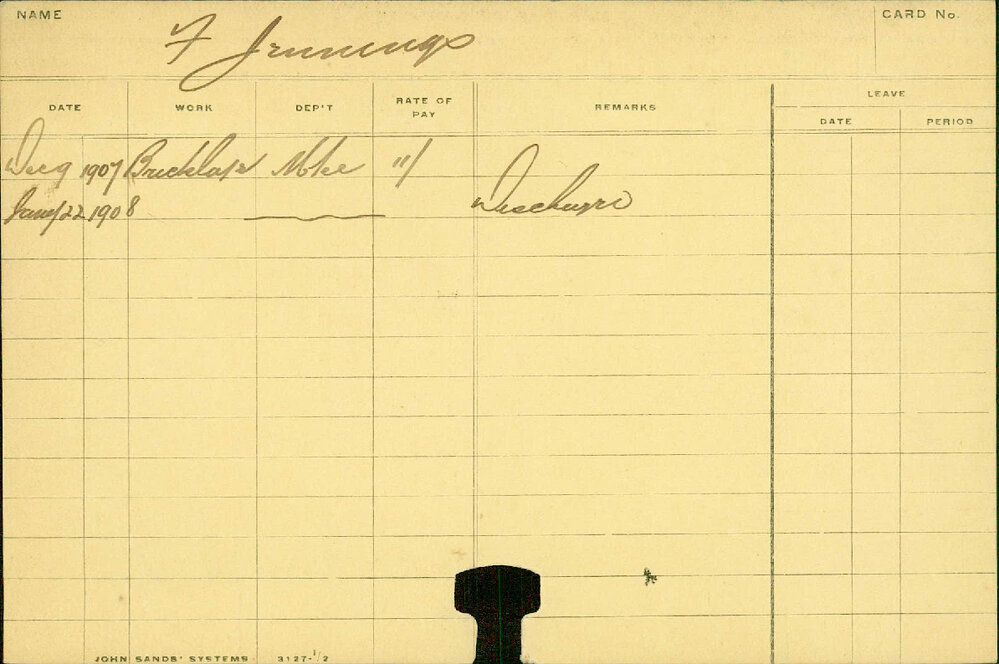 NAME F Jennings CARD No.
DATE WORK DEP'T RATE OF PAY REMARKS LEAVE
DATE PERIOD
Dec 9 1907 Bricklayer Mtce 11/
Jany 22 1908 Discharged
JOHN SANDS' SYSTEMS 3127-1/2